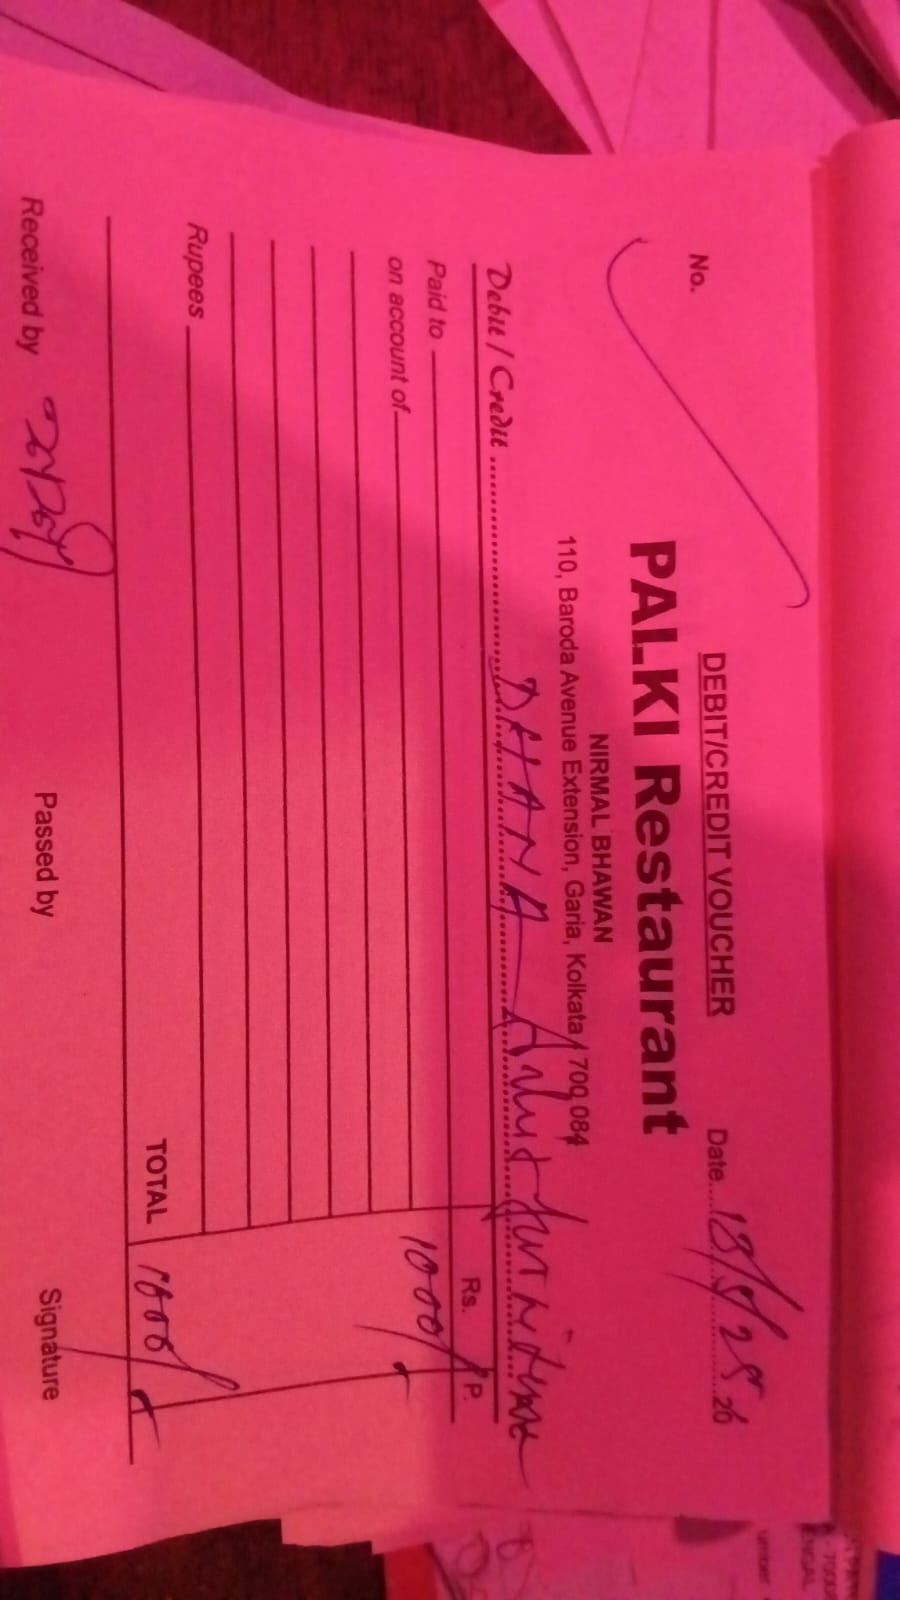 DEBIT/CREDIT VOUCHER
No.
Date 18/5/25 20
PALKI Restaurant
NIRMAL BHAWAN
110, Baroda Avenue Extension, Garia, Kolkata 700 084
Debit / Credit
Rs. P.
Paid to
on account of 1000/-
Rupees
TOTAL 1000/-
Received by
Passed by
Signature